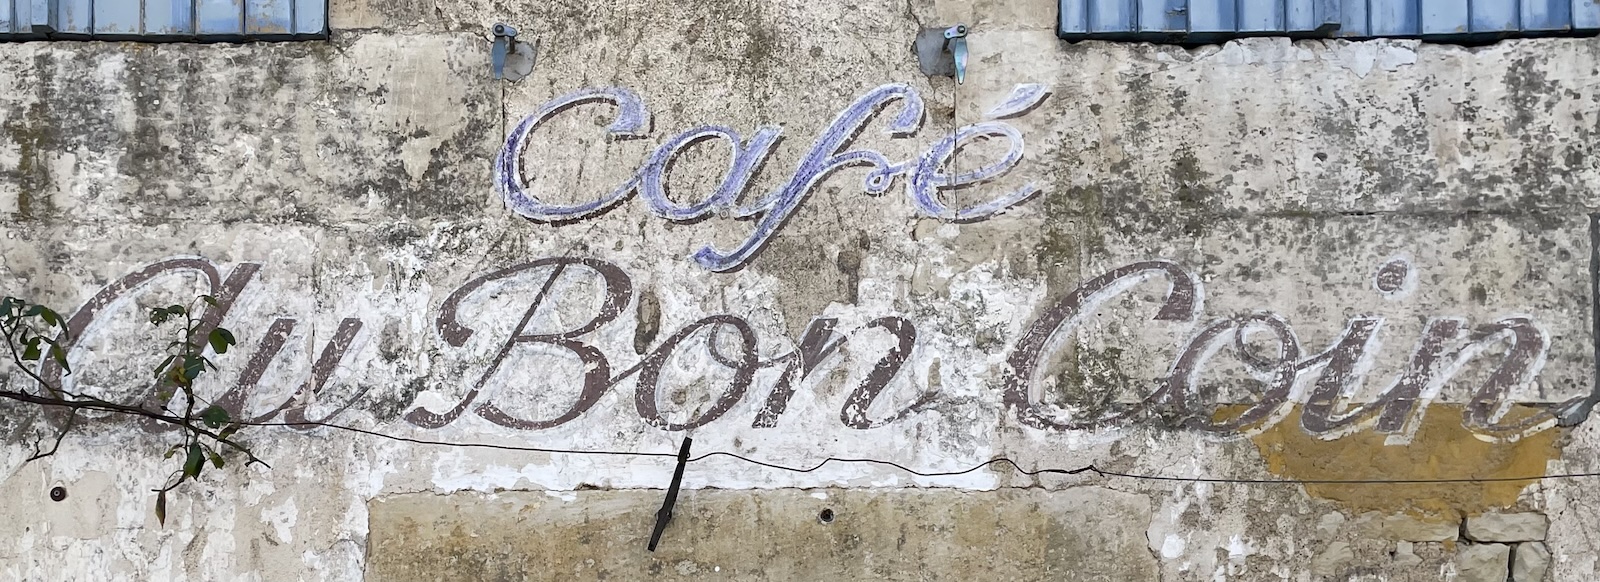 Café
Au Bon Coin